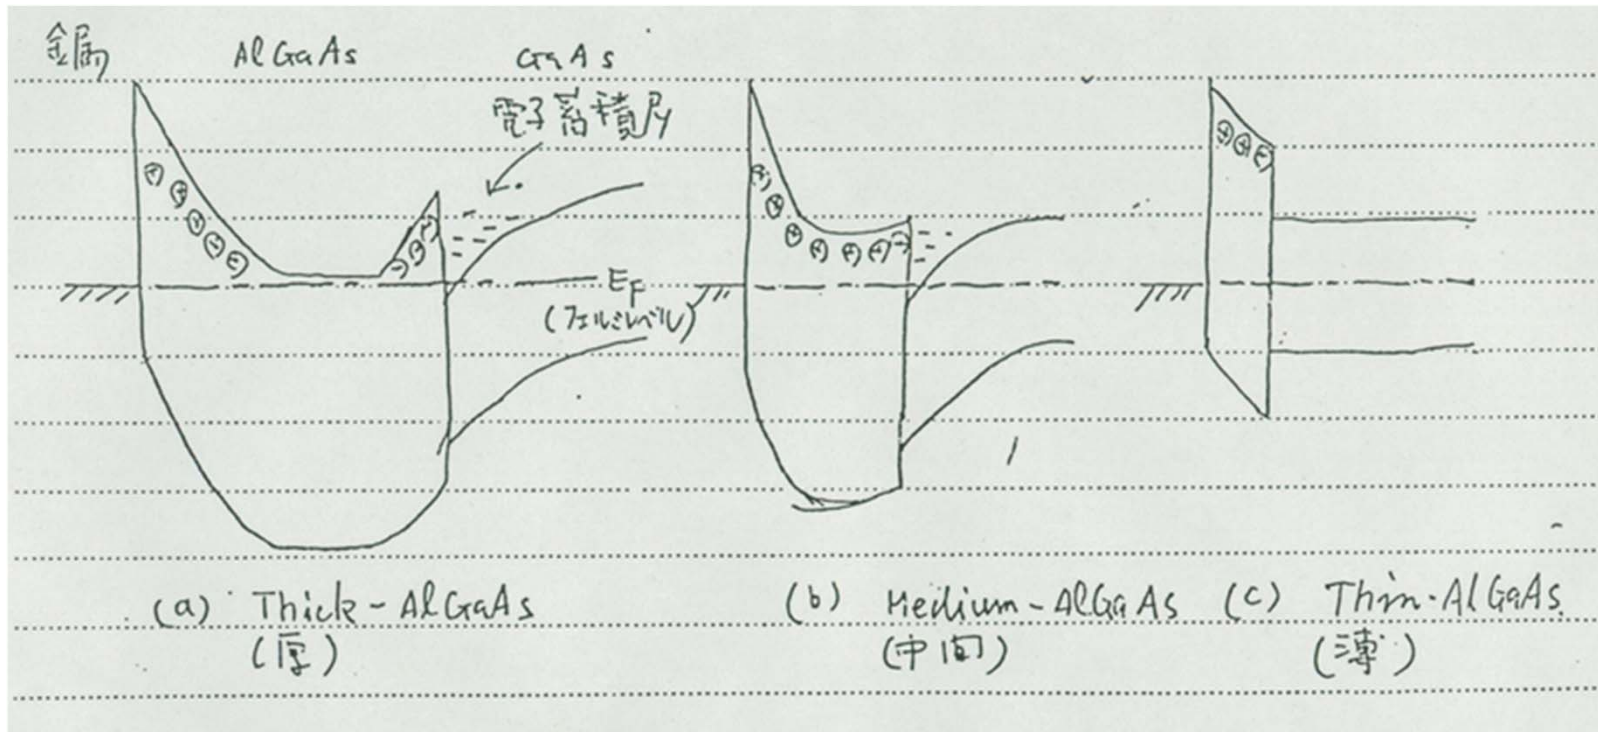 金属 AlGaAs GaAs
電子蓄積层
EF
(フェルミレベル)
(a) Thick-AlGaAs (b) Medium-AlGaAs (c) Thin-AlGaAs
(厚) (中間) (薄)